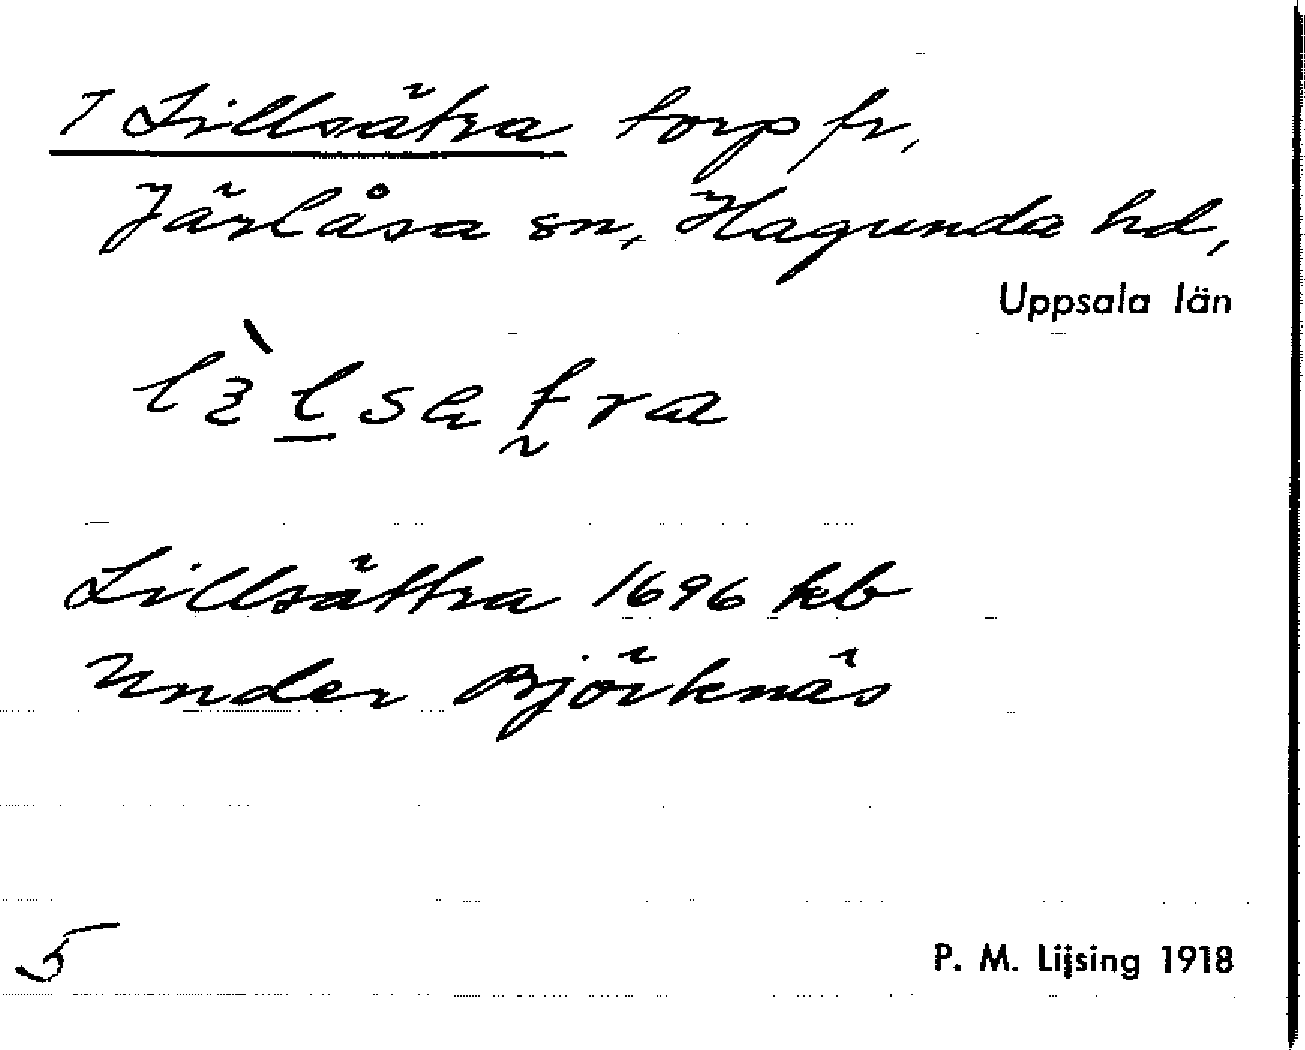 7 Lillsätra torp fr,
Järlåsa sn, Hagunda hd,
Uppsala län
Lillsättra 1696 kb
Under Björknäs
5
P. M. Lijsing 1918